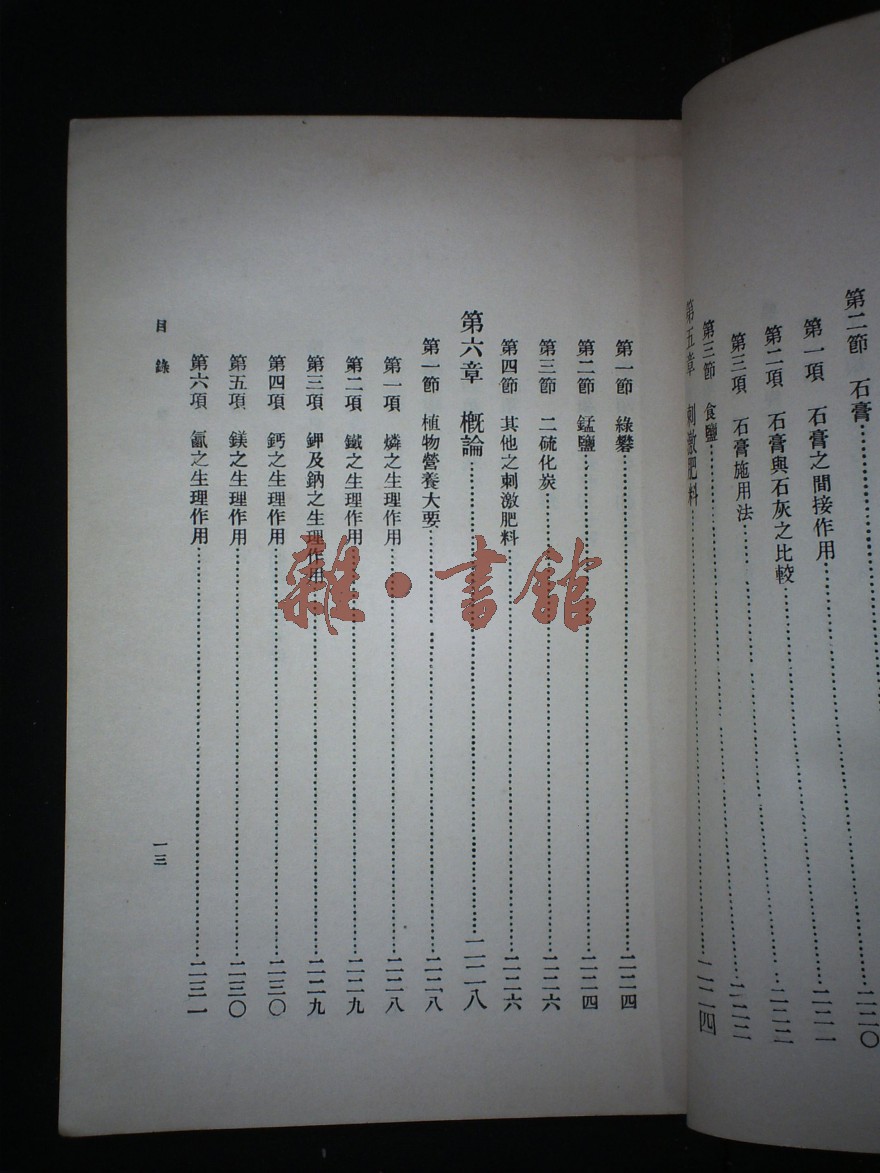 第二節　石膏……二二〇
第一項　石膏之間接作用……二二一
第二項　石膏與石灰之比較……二二二
第三項　石膏施用法……二二二
第三節　食鹽
第五章　刺激肥料……二二四
第一節　綠礬……二二四
第二節　錳鹽……二二四
第三節　二硫化炭……二二六
第四節　其他之刺激肥料……二二六
第六章　概論……二二八
第一節　植物營養大要……二二八
第一項　燐之生理作用……二二八
第二項　鐵之生理作用……二二九
第三項　鉀及鈉之生理作用……二二九
第四項　鈣之生理作用……二三〇
第五項　鎂之生理作用……二三〇
第六項　氯之生理作用……二三一
目錄
一三
雜·書館